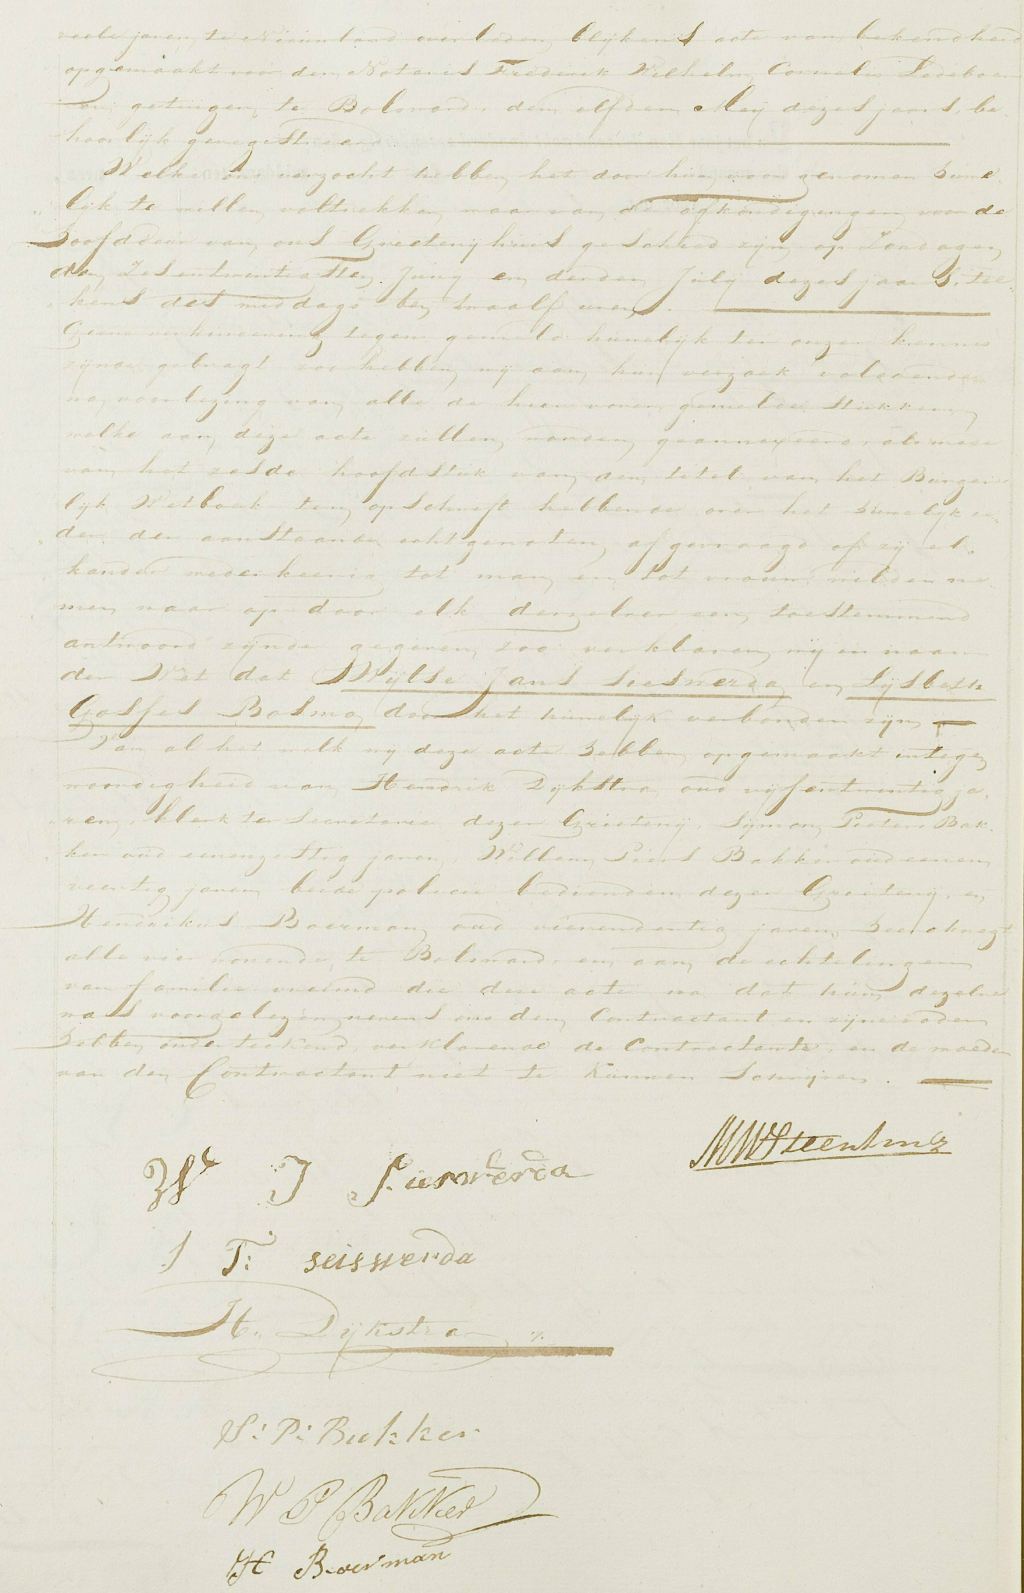 veele jaren te Nieuwland overleden, blijkens acte van bekendheid
opgemaakt voor den Notaris Frederik Wilhelm Cornelis Ledeboer
en getuigen te Bolsward den elfden Mey dezes jaars, be-
hoorlijk geregistreerd.
Welke ons verzocht hebben het door hun voorgenomen huwe-
lijk te willen voltrekken, waarvan de afkondigingen voor de
hoofddeur van ons Grietenijhuis geschied zijn op Zondagen
den Zesentwintigsten Junij en derden Julij dezes jaars, tel-
kens des middags ten twaalf uren.
Geene verhindering tegen gemeld huwelijk ter onzer kennis
zijnde gebragt zoo hebben wij aan hun verzoek voldoende
na voorlezing van alle de hier voren gemelde stukken,
welke aan deze acte zullen worden geannexeerd, alsmede
van het zesde hoofdstuk van den titel van het Burger-
lijk Wetboek ten opschrift hebbende over het huwelijk
den aanstaande echtgenoten afgevraagd of zij el-
kander wederkeerig tot man en tot vrouw wilden ne-
men, waar op door elk derzelver een toestemmend
antwoord zijnde gegeven, zoo verklaren wij in naam
der Wet dat Wijtse Jans Seiswerda en Lijsbeth
Gosses Bosma door het huwelijk verbonden zijn,
Van al het welk wij deze acte hebben opgemaakt in tegen-
woordigheid van Hendrik Dijkstra oud vijfentwintig ja-
ren, klerk ter Secretarie dezer Grietenij, Sijmon Pieters Bak-
ker oud eenenzestig jaren, Willem Piers Bakker oud eenen
veertig jaren, beide policie bedienden dezer Grietenij, en
Hendrikus Boerman, oud vierendertig jaren,
alle vier wonende te Bolsward en aan de echtelingen
van familie vreemd die deze acte na dat hun dezelve
was voorgelezen nevens ons den Contractant en zijne vader
hebben onderteekend, verklarende de Contractante en de moeder
van den Contractant niet te kunnen Schrijven.
W J Seiswerda
J T: seiswerda
H. Dijkstra
S: P: Bakker
W P Bakker
H Boerman